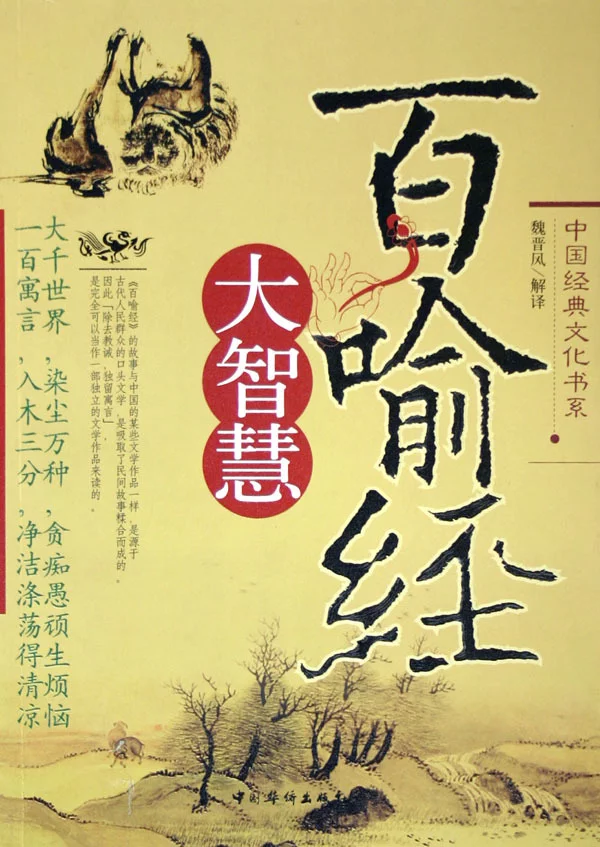 百喻经
大智慧
中国经典文化书系
魏晋风/解译
《百喻经》的故事与中国的某些文学作品一样，是源于
古代人民群众的口头文学，是吸取了民间故事糅合而成的。
因此「除去教诫，独留寓言」，
是完全可以当作一部独立的文学作品来读的。
大千世界，染尘万种，贪痴愚顽生烦恼
一百寓言，入木三分，净洁涤荡得清凉
中国华侨出版社